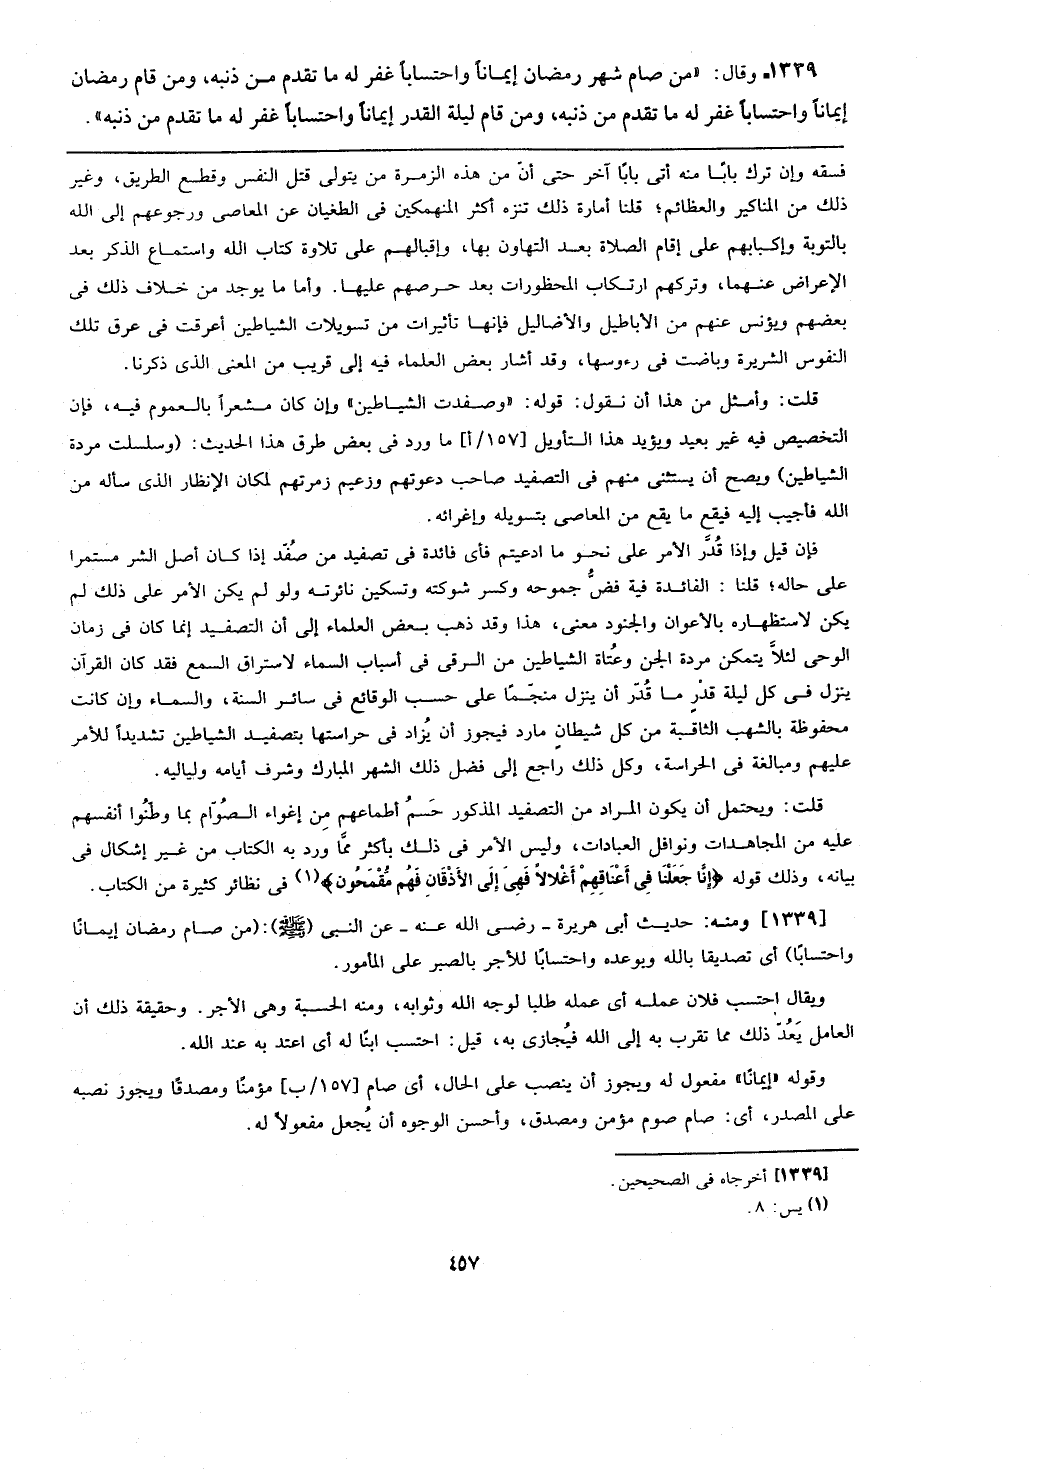 ١٣٣٩ـ وقال: «من صام شهر رمضان إيمـاناً واحتساباً غفر له ما تقدم مـن ذنبه، ومن قام رمضان
إيماناً واحتساباً غفر له ما تقدم من ذنبه، ومن قام ليلة القدر إيماناً واحتساباً غفر له ما تقدم من ذنبه».
فسقه وإن ترك بابًـا منه أتى بابًا آخر حتى أنّ من هذه الزمـرة من يتولى قتل النفس وقطـع الطريق، وغير
ذلك من المناكير والعظائم؛ قلنا أمارة ذلك تنزه أكثر المنهمكين فى الطغيان عن المعاصى ورجوعهم إلى الله
بالتوبة وإكـبابهم على إقام الصلاة بعـد التهاون بها، وإقبالهـم على تلاوة كتاب الله واستمـاع الذكر بعد
الإعراض عنـهما، وتركهم ارتـكاب المحظورات بعد حـرصهم عليهـا. وأما ما يوجد من خـلاف ذلك فى
بعضهم ويؤنس عنهم من الأباطيل والأضاليل فإنهـا تأثيرات من تسويلات الشياطين أعرقت فى عرق تلك
النفوس الشريرة وباضت فى رءوسها، وقد أشار بعض العلماء فيه إلى قريب من المعنى الذى ذكرنا.
قلت: وأمـثل من هذا أن نـقول: قوله: «وصـفدت الشيـاطين» وإن كان مـشعراً بالـعموم فيـه، فإن
التخصيص فيه غير بعيد ويؤيد هذا الـتأويل [١٥٧/أ] ما ورد فى بعض طرق هذا الحديث: (وسلسلت مردة
الشياطين) ويصح أن يستثنى منهم فى التصفيد صاحب دعوتهم وزعيم زمرتهم لمكان الإنظار الذى سأله من
الله فأجيب إليه فيقع ما يقع من المعاصى بتسويله وإغرائه.
فإن قيل وإذا قُدِّر الأمر على نحـو ما ادعيتم فأى فائدة فى تصفيد من صُفّد إذا كـان أصل الشر مستمرا
على حاله؛ قلنا : الفائـدة فية فضُّ جموحه وكسر شوكته وتسكين نائرتـه ولو لم يكن الأمر على ذلك لم
يكن لاستظهـاره بالأعوان والجنود معنى، هذا وقد ذهب بـعض العلماء إلى أن التصفـيد إنما كان فى زمان
الوحى لئلاَّ يتمكن مردة الجن وعُتاة الشياطين من الـرقى فى أسباب السماء لاستراق السمع فقد كان القرآن
ينزل فـى كل ليلة قدْرٍ مـا قُدّر أن ينزل منجّمًا على حسب الوقائع فى سائـر السنة، والسمـاء وإن كانت
محفوظة بالشهب الثاقـبة من كل شيطانٍ مارد فيجوز أن يُزاد فى حراستها بتصفيـد الشياطين تشديداً للأمر
عليهم ومبالغة فى الحراسة، وكل ذلك راجع إلى فضل ذلك الشهر المبارك وشرف أيامه ولياليه.
قلت: ويحتمل أن يكون المراد من التصفيد المذكور حَسمُ أطماعهم مِن إغواء الـصُوّام بما وطنُوا أنفسهم
عليه من المجاهـدات ونوافل العبادات، وليس الأمر فى ذلـك بأكثر ممَّا ورد به الكتاب من غـير إشكال فى
بيانه، وذلك قوله ﴿إِنَّا جَعَلْنَا فِي أَعْنَاقِهِمْ أَغْلالاً فَهِيَ إِلَى الأَذْقَانِ فَهُم مُّقْمَحُون﴾(١) فى نظائر كثيرة من الكتاب.
[١٣٣٩] ومنـه: حديـث أبى هريرة ـ رضـى الله عـنه ـ عن النـبى (ﷺ):(من صـام رمضان إيمـانًا
واحتسابًا) أى تصديقا بالله وبوعده واحتسابًا للأجر بالصبر على المأمور.
ويقال احتسب فلان عملـه أى عمله طلبا لوجه الله وثوابه، ومنه الحسبة وهى الأجر. وحقيقة ذلك أن
العامل يَعُدّ ذلك مما تقرب به إلى الله فيُجازى به، قيل: احتسب ابنًا له أى اعتد به عند الله.
وقوله «إيمانًا» مفعول له ويجوز أن ينصب على الحال، أى صام [١٥٧/ب] مؤمنًا ومصدقًا ويجوز نصبه
على المصدر، أى: صام صوم مؤمن ومصدق، وأحسن الوجوه أن يُجعل مفعولاً له.
[١٣٣٩] أخرجاه فى الصحيحين.
(١) يس: ٨.
٤٥٧